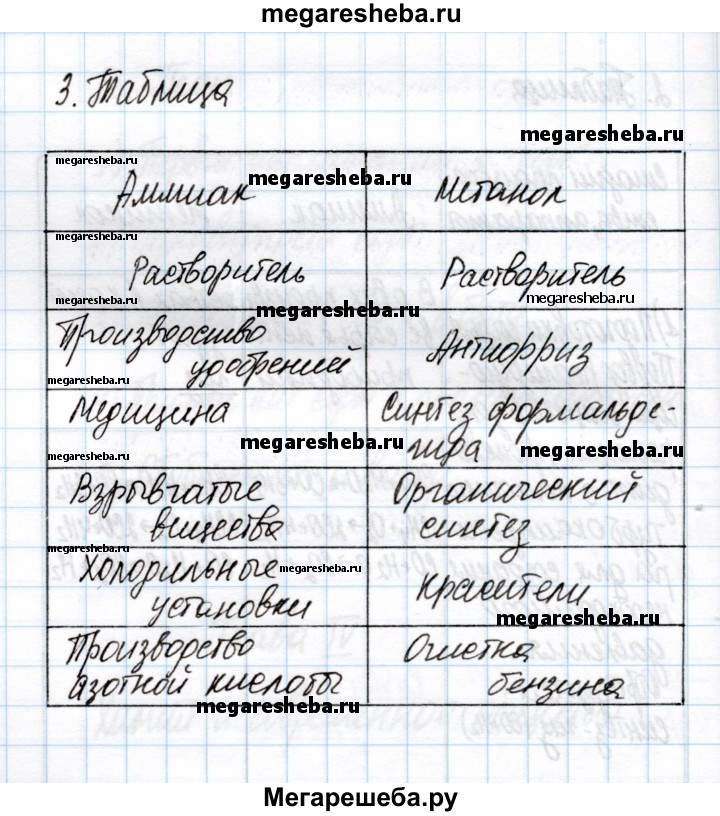 megaresheba.ru
3. Таблица
megaresheba.ru
megaresheba.ru
Аммиак
megaresheba.ru
Метанол
Растворитель
Растворитель
megaresheba.ru
megaresheba.ru
Производство
удобрений
Антифриз
megaresheba.ru
Медицина
Синтез формальде-
гида
megaresheba.ru
megaresheba.ru
megaresheba.ru
Взрывчатые
вещества
Органический
синтез
megaresheba.ru
Холодильные
установки
megaresheba.ru
Красители
megaresheba.ru
Производство
азотной кислоты
Очистка
бензина
megaresheba.ru
Мегарешеба.ру